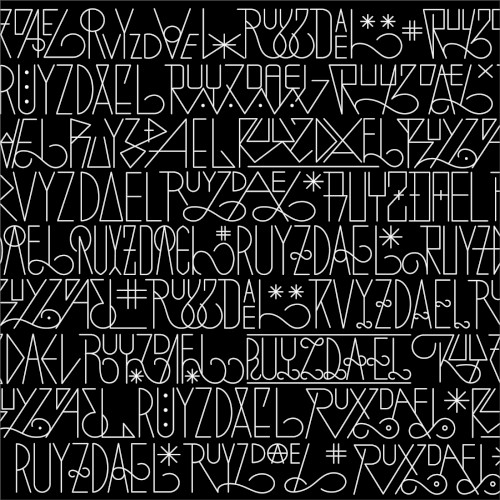 RUYZDAEL RUYZDAEL * RUYZDAEL ** # RUYZ
RUYZDAEL RUYZDAEL RUYZDAEL *
AEL RUYZDAEL RUYZDAEL RUYZ
RUYZDAEL RUYZDAEL * RUYZDAEL
DAEL RUYZDAEL # RUYZDAEL * RUYZDA
RUYZDAEL # RUYZDAEL ** RUYZDAEL R
ZDAEL RUYZDAEL RUYZDAEL RUYZ
RUYZDAEL RUYZDAEL RUYZDAEL *
RUYZDAEL * RUYZDAE # RUYZDAEL